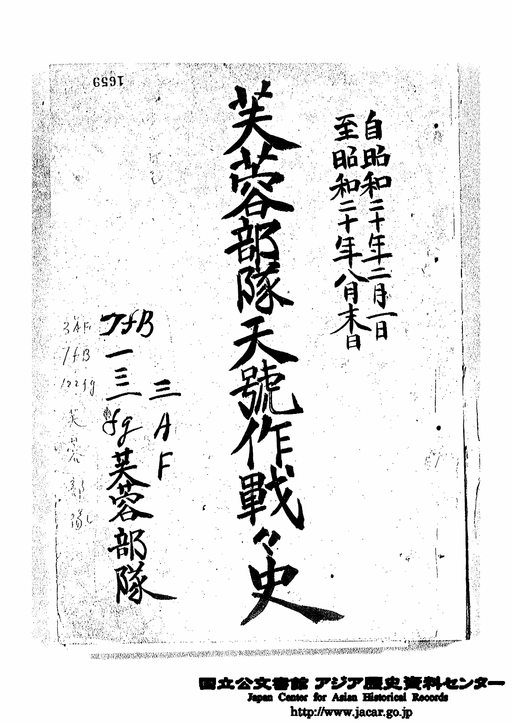 1659
自昭和二十年二月一日
至昭和二十年八月末日
芙蓉部隊天號作戰々史
三AF
7fB
一三一fg芙蓉部隊
3AF
7fB
芙蓉部隊
国立公文書館 アジア歴史資料センター
Japan Center for Asian Historical Records
http://www.jacar.go.jp